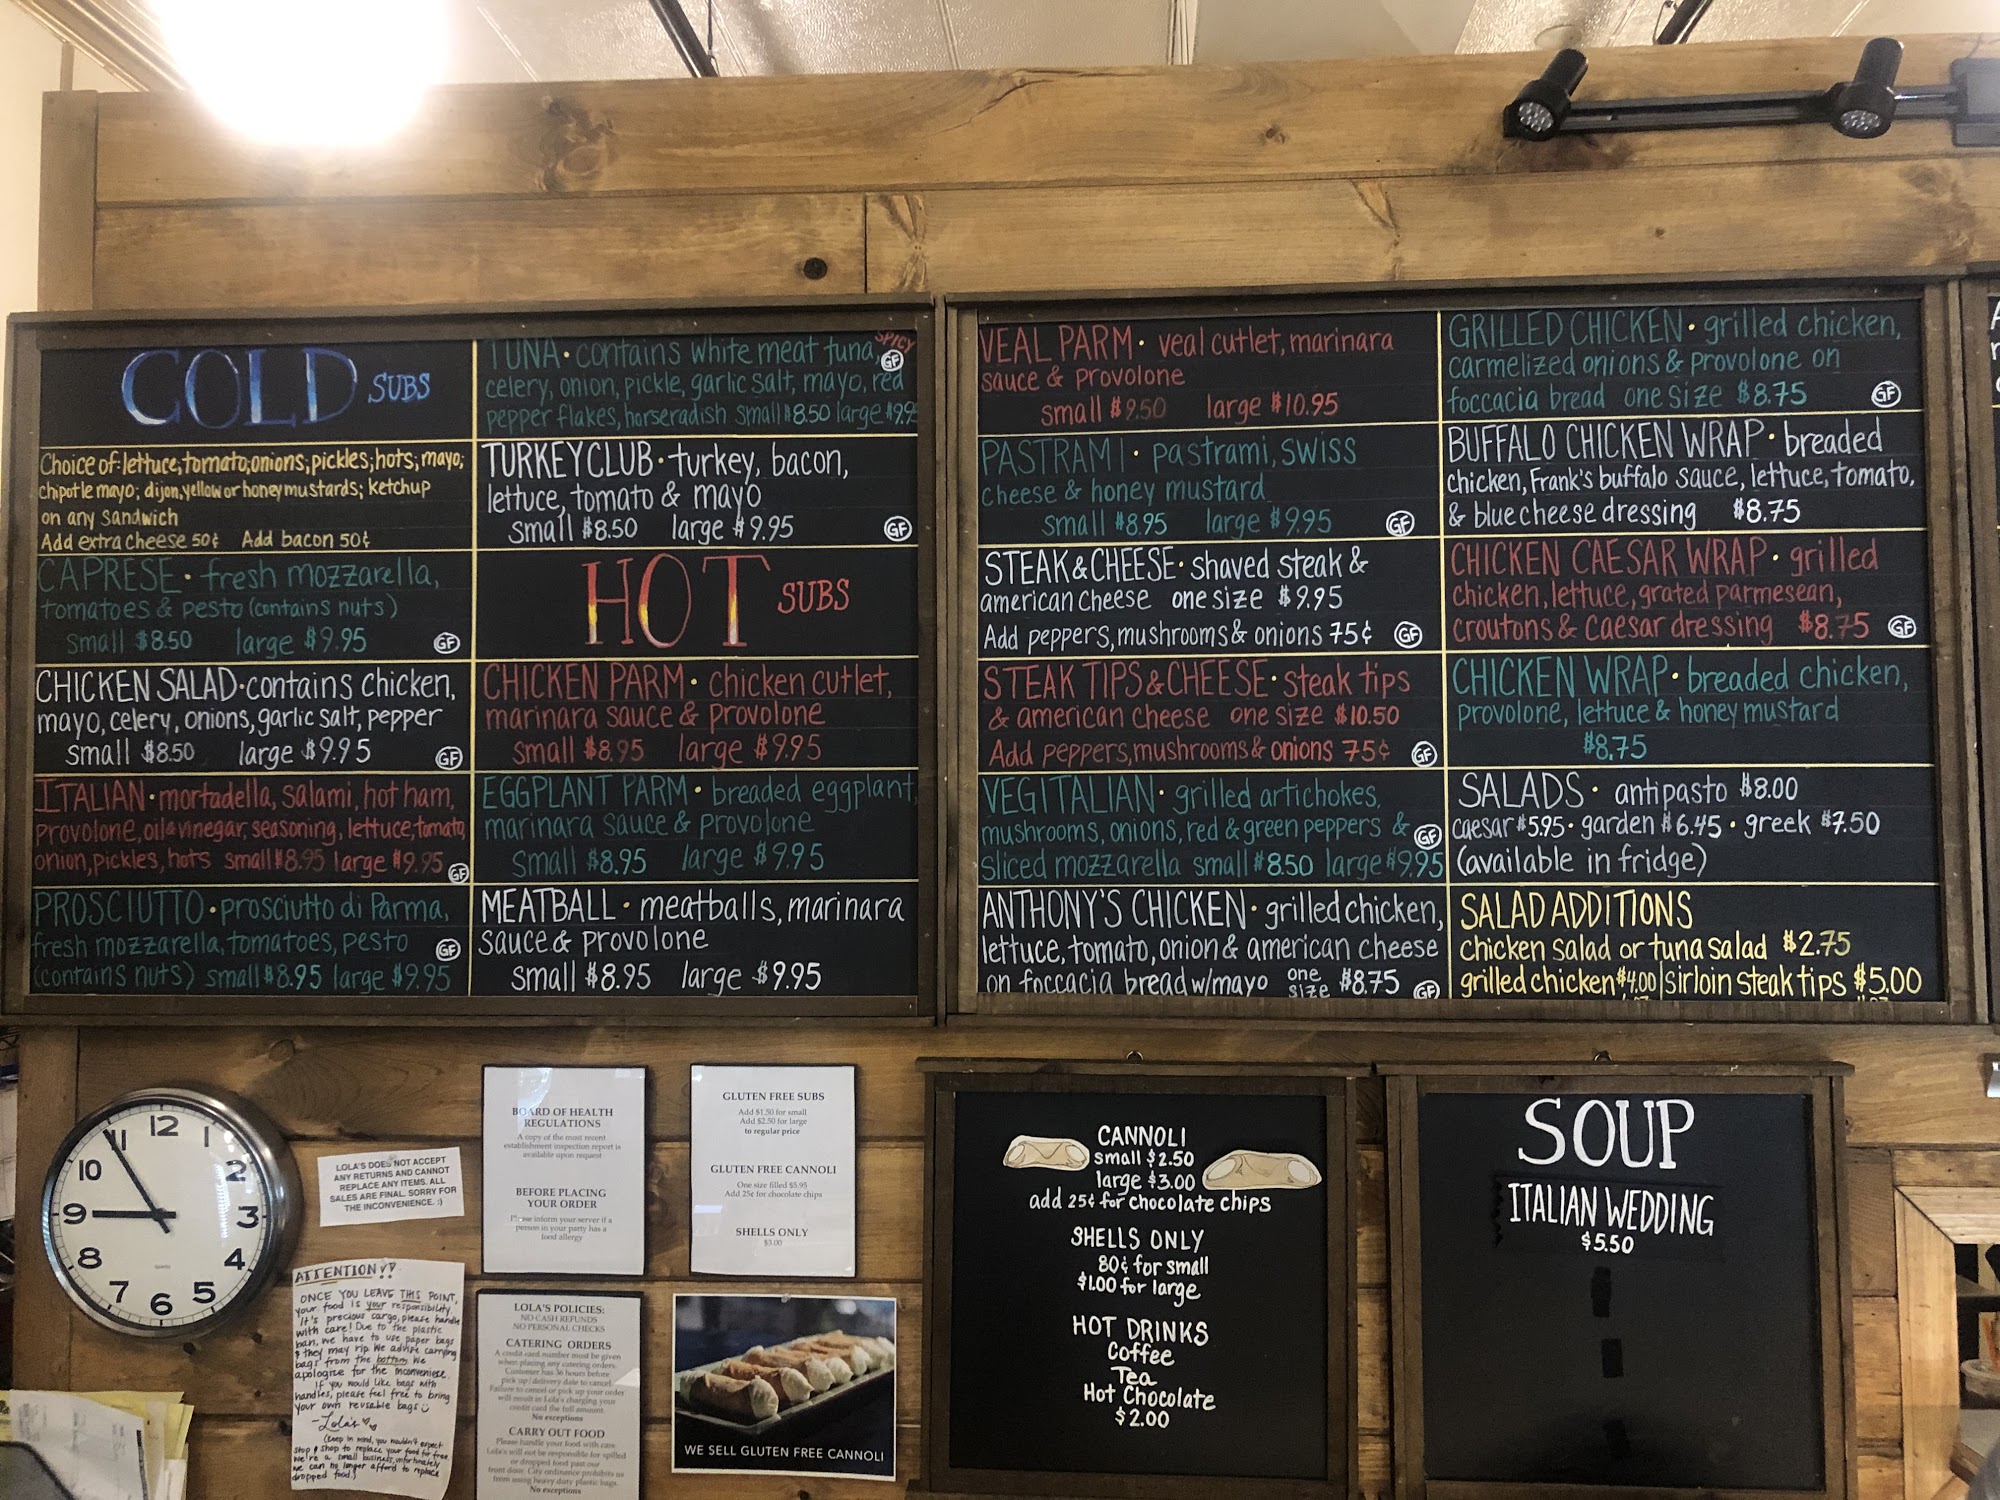 COLD SUBS
Choice of: lettuce; tomato; onions; pickles; hots; mayo;
chipotle mayo; dijon, yellow or honey mustards; ketchup
on any sandwich
Add extra cheese 50¢ Add bacon 50¢
CAPRESE • fresh mozzarella,
tomatoes & pesto (contains nuts)
small $8.50 large $9.95 GF
CHICKEN SALAD • contains chicken,
mayo, celery, onions, garlic salt, pepper
small $8.50 large $9.95 GF
ITALIAN • mortadella, salami, hot ham,
provolone, oil & vinegar, seasoning, lettuce, tomato,
onion, pickles, hots small $8.95 large $9.95 GF
PROSCIUTTO • prosciutto di Parma,
fresh mozzarella, tomatoes, pesto GF
(contains nuts) small $8.95 large $9.95
SPICY
TUNA • contains white meat tuna, GF
celery, onion, pickle, garlic salt, mayo, red
pepper flakes, horseradish small $8.50 large $9.95
TURKEY CLUB • turkey, bacon,
lettuce, tomato & mayo
small $8.50 large $9.95 GF
HOT SUBS
CHICKEN PARM • chicken cutlet,
marinara sauce & provolone
small $8.95 large $9.95
EGGPLANT PARM • breaded eggplant,
marinara sauce & provolone
small $8.95 large $9.95
MEATBALL • meatballs, marinara
sauce & provolone
small $8.95 large $9.95
VEAL PARM • veal cutlet, marinara
sauce & provolone
small $9.50 large $10.95
PASTRAMI • pastrami, swiss
cheese & honey mustard
small $8.95 large $9.95 GF
STEAK & CHEESE • shaved steak &
american cheese one size $9.95
Add peppers, mushrooms & onions 75¢ GF
STEAK TIPS & CHEESE • steak tips
& american cheese one size $10.50
Add peppers, mushrooms & onions 75¢ GF
VEGITALIAN • grilled artichokes,
mushrooms, onions, red & green peppers & GF
sliced mozzarella small $8.50 large $9.95
ANTHONY'S CHICKEN • grilled chicken,
lettuce, tomato, onion & american cheese
on foccacia bread w/mayo one size $8.75 GF
GRILLED CHICKEN • grilled chicken,
carmelized onions & provolone on
foccacia bread one size $8.75 GF
BUFFALO CHICKEN WRAP • breaded
chicken, Frank's buffalo sauce, lettuce, tomato,
& blue cheese dressing $8.75
CHICKEN CAESAR WRAP • grilled
chicken, lettuce, grated parmesean,
croutons & caesar dressing $8.75 GF
CHICKEN WRAP • breaded chicken,
provolone, lettuce & honey mustard
$8.75
SALADS • antipasto $8.00
caesar $5.95 • garden $6.45 • greek $7.50
(available in fridge)
SALAD ADDITIONS
chicken salad or tuna salad $2.75
grilled chicken $4.00 | sirloin steak tips $5.00
12
1
2
3
4
5
6
7
8
9
10
11
QUARTZ
LOLA'S DOES NOT ACCEPT
ANY RETURNS AND CANNOT
REPLACE ANY ITEMS. ALL
SALES ARE FINAL. SORRY FOR
THE INCONVENIENCE. :)
ATTENTION!!
ONCE YOU LEAVE THIS POINT,
your food is your responsibility.
It's precious cargo, please handle
with care! Due to the plastic
ban, we have to use paper bags
& they may rip. We advise carrying
bags from the bottom. We
apologize for the inconvenience.
If you would like bags with
handles, please feel free to bring
your own reusable bags
- Lola's
(keep in mind, you wouldn't expect
stop & shop to replace your food for free
we're a small business, unfortunately
we can no longer afford to replace
dropped food)
BOARD OF HEALTH
REGULATIONS
A copy of the most recent
establishment inspection report is
available upon request
BEFORE PLACING
YOUR ORDER
Please inform your server if a
person in your party has a
food allergy
LOLA'S POLICIES:
NO CASH REFUNDS
NO PERSONAL CHECKS
CATERING ORDERS
A credit card number must be given
when placing any catering orders.
Customer has 36 hours before
pick up/delivery date to cancel.
Failure to cancel or pick up your order
will result in Lola's charging your
credit card the full amount.
No exceptions
CARRY OUT FOOD
Please handle your food with care.
Lola's will not be responsible for spilled
or dropped food past our
front door. City ordinance prohibits us
from using heavy duty plastic bags.
No exceptions
GLUTEN FREE SUBS
Add $1.50 for small
Add $2.50 for large
to regular price
GLUTEN FREE CANNOLI
One size filled $5.95
Add 25¢ for chocolate chips
SHELLS ONLY
$3.00
WE SELL GLUTEN FREE CANNOLI
CANNOLI
small $2.50
large $3.00
add 25¢ for chocolate chips
SHELLS ONLY
80¢ for small
$1.00 for large
HOT DRINKS
Coffee
Tea
Hot Chocolate
$2.00
SOUP
ITALIAN WEDDING
$5.50